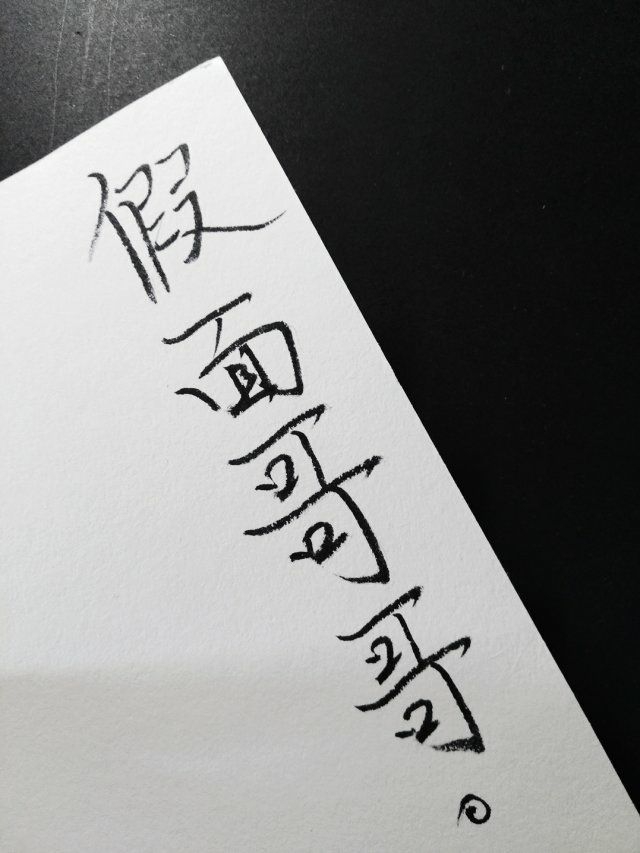 假面哥哥。